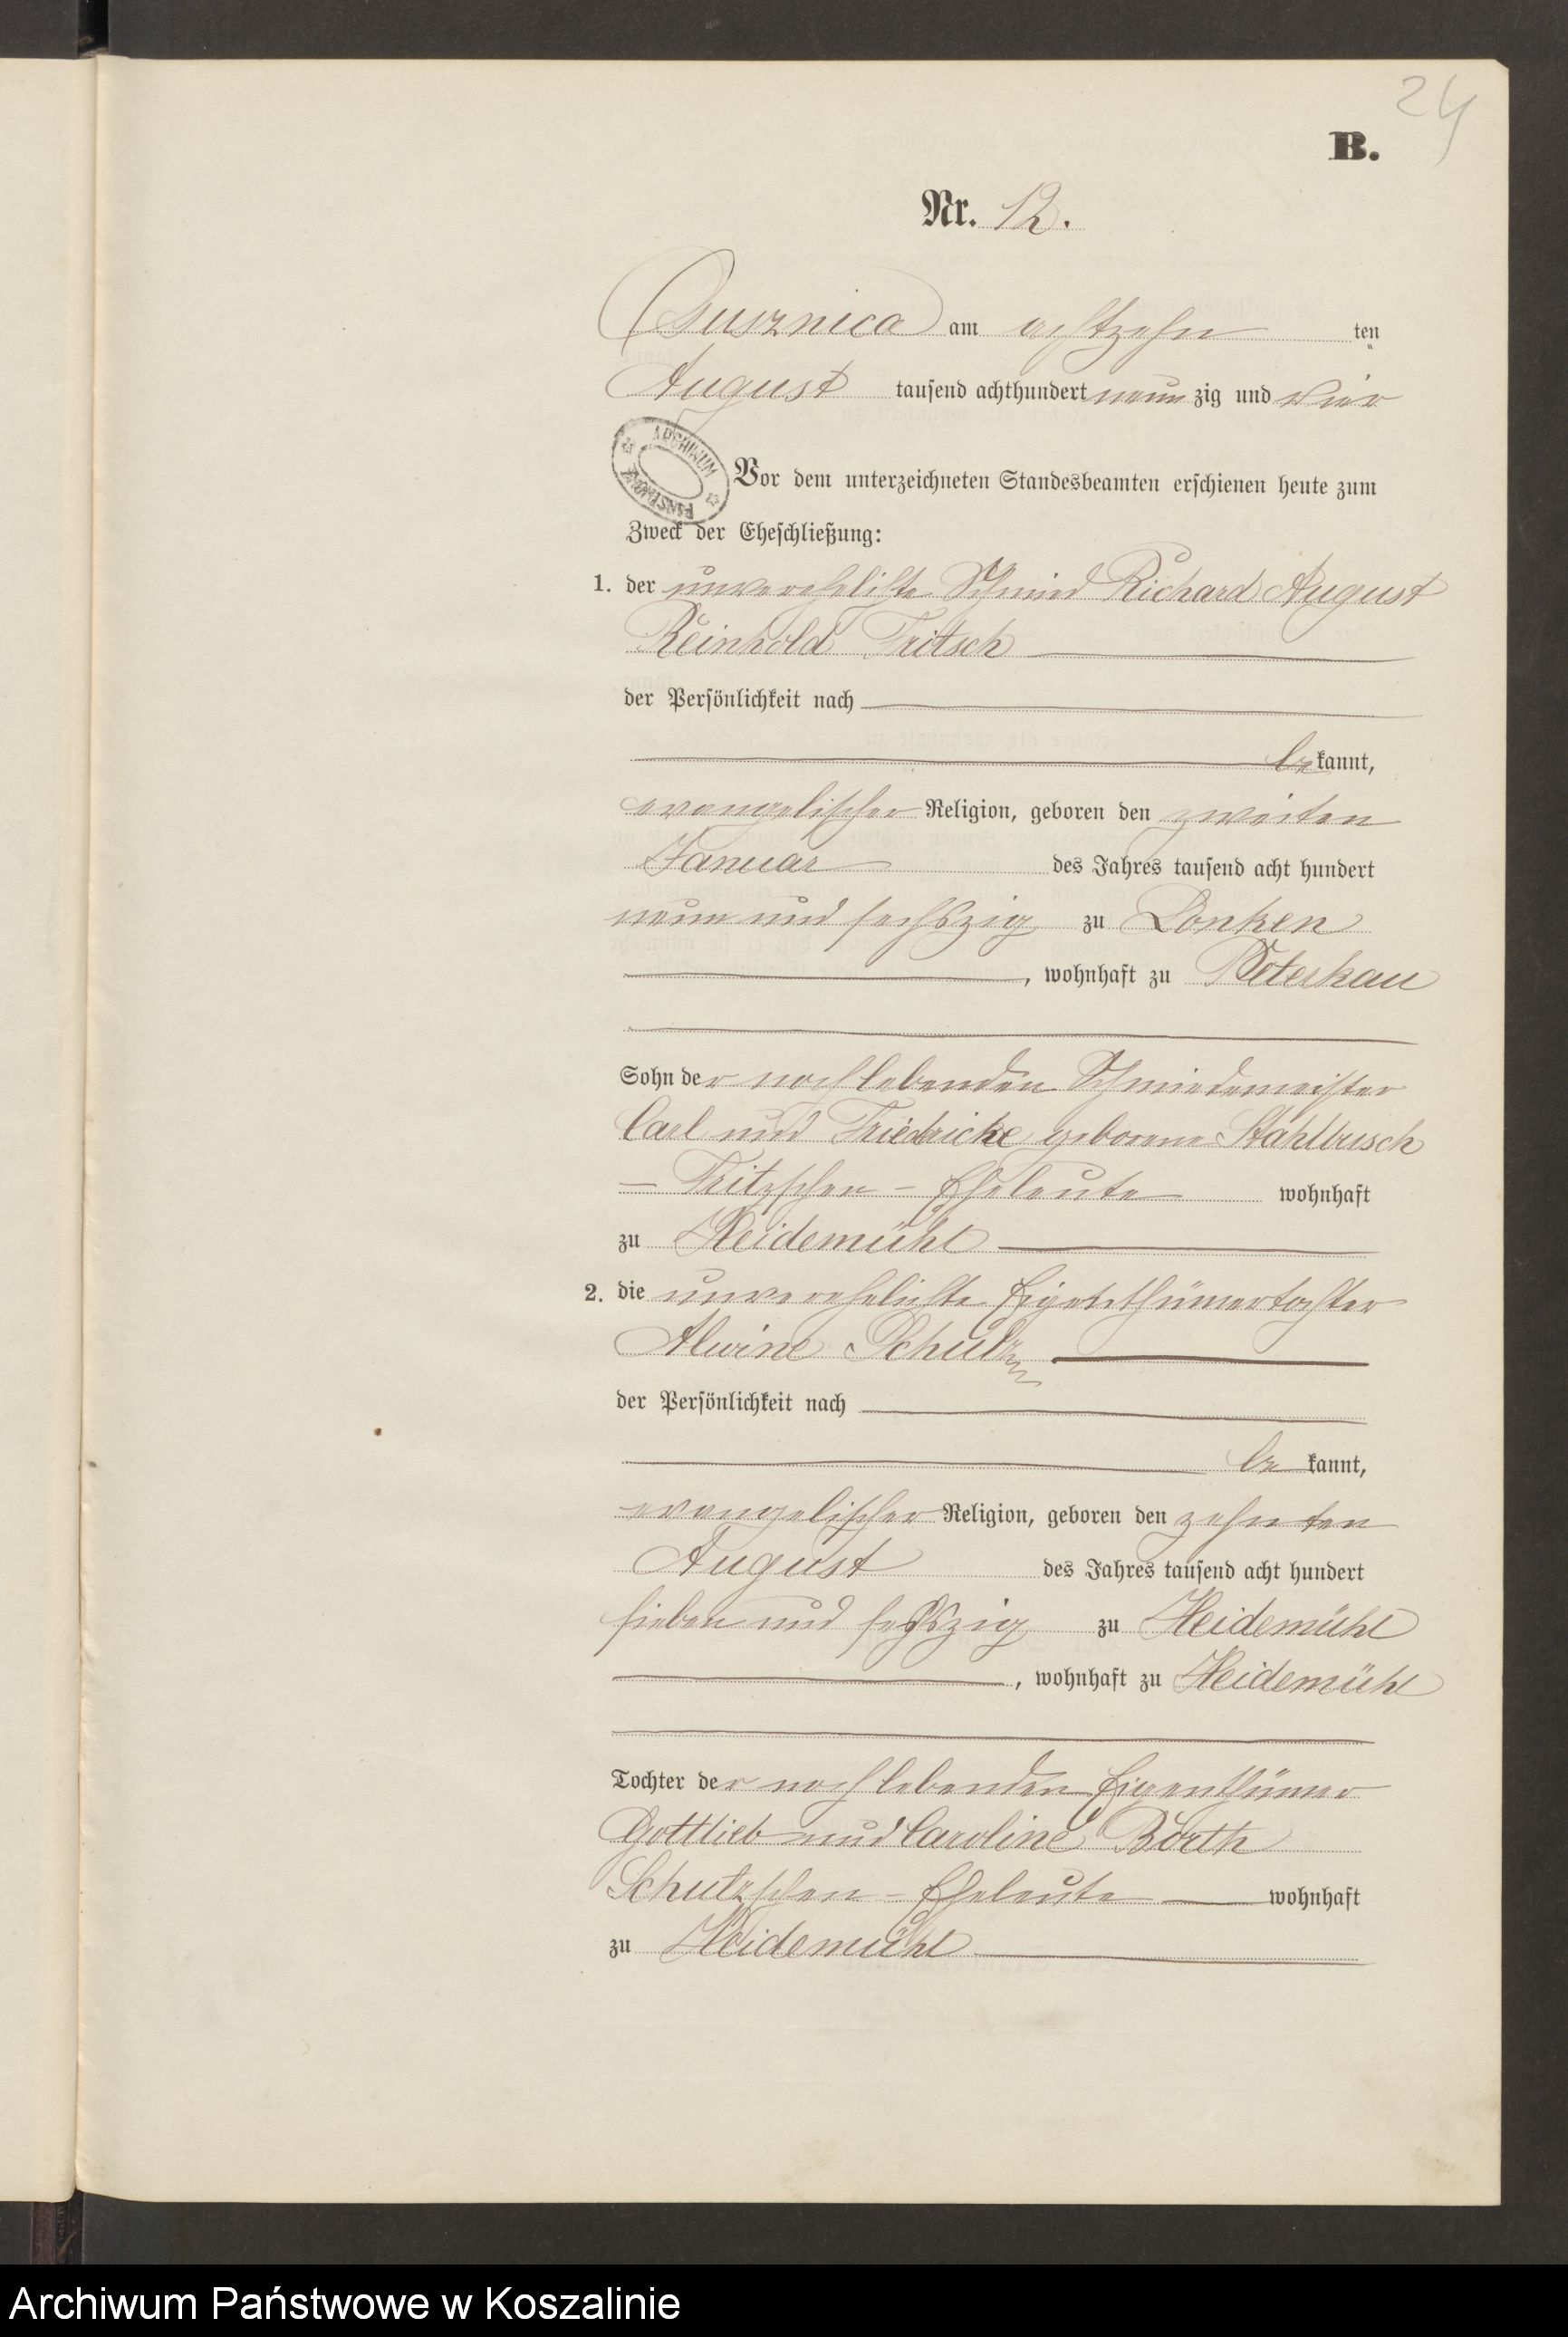 24
B.
Nr. 12.
Ossusznica am achtzehn ten
August tausend achthundert neunzig und vier
ARCHIWUM PAŃSTWOWE
Vor dem unterzeichneten Standesbeamten erschienen heute zum
Zweck der Eheschließung:
1. der unverehelichte Schmied Richard August
Reinhold Fritsch
der Persönlichkeit nach
bekannt,
evangelischer Religion, geboren den zweiten
Januar des Jahres tausend acht hundert
neun und sechszig zu Lonken
, wohnhaft zu Peterkau
Sohn der noch lebenden Schmiedemeister
Carl und Friedricke geborene Stahlbusch
– Fritzschen – Eheleute wohnhaft
zu Heidemühl
2. die unverehelichte Eigenthümertochter
Alwine Schulz
der Persönlichkeit nach
bekannt,
evangelischer Religion, geboren den zehnten
August des Jahres tausend acht hundert
sieben und sechszig zu Heidemühl
, wohnhaft zu Heidemühl
Tochter der noch lebenden Eigenthümer
Gottlieb und Caroline Borth
Schulzschen – Eheleute wohnhaft
zu Heidemühl
Archiwum Państwowe w Koszalinie